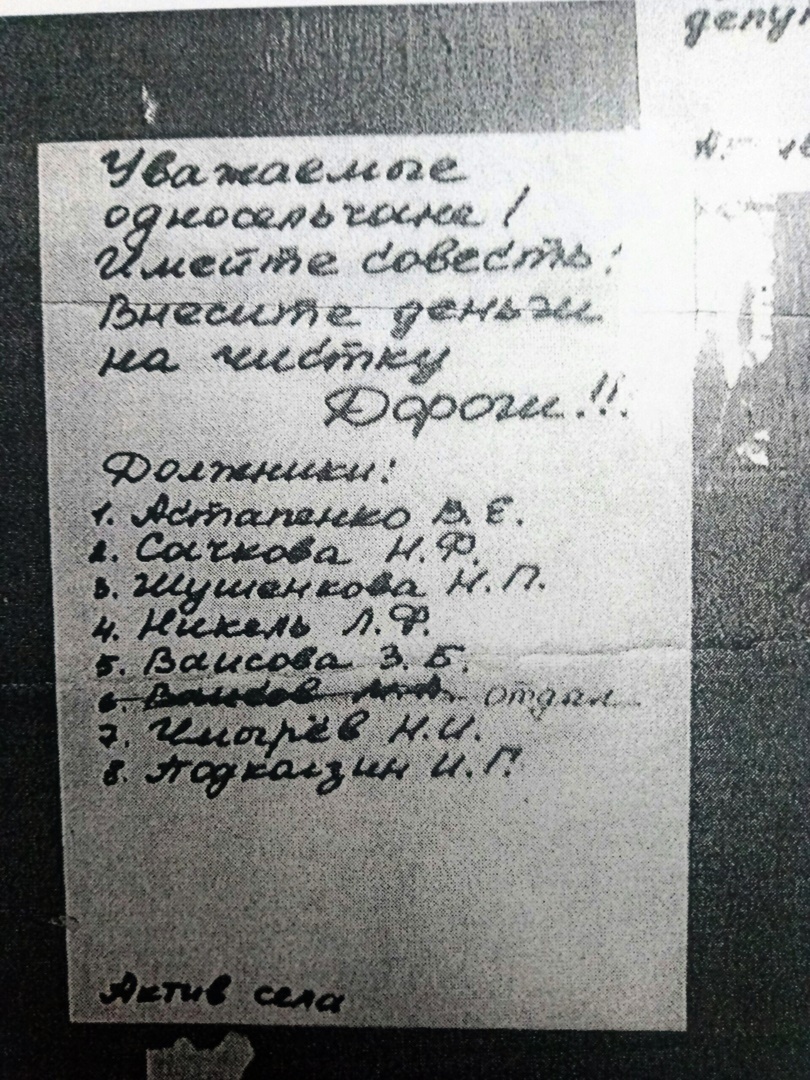 депу
Уважаемые
односельчане!
Имейте совесть!
Внесите деньги
на чистку
Дороги!!!
Должники:
1. Астапенко В. Е.
2. Сачкова Н. Ф.
3. Шушенкова Н. П.
4. Никель Л. Ф.
5. Ваисова З. Б.
6. отдал
7. Н. И.
8. Подколзин И. П.
Актив села